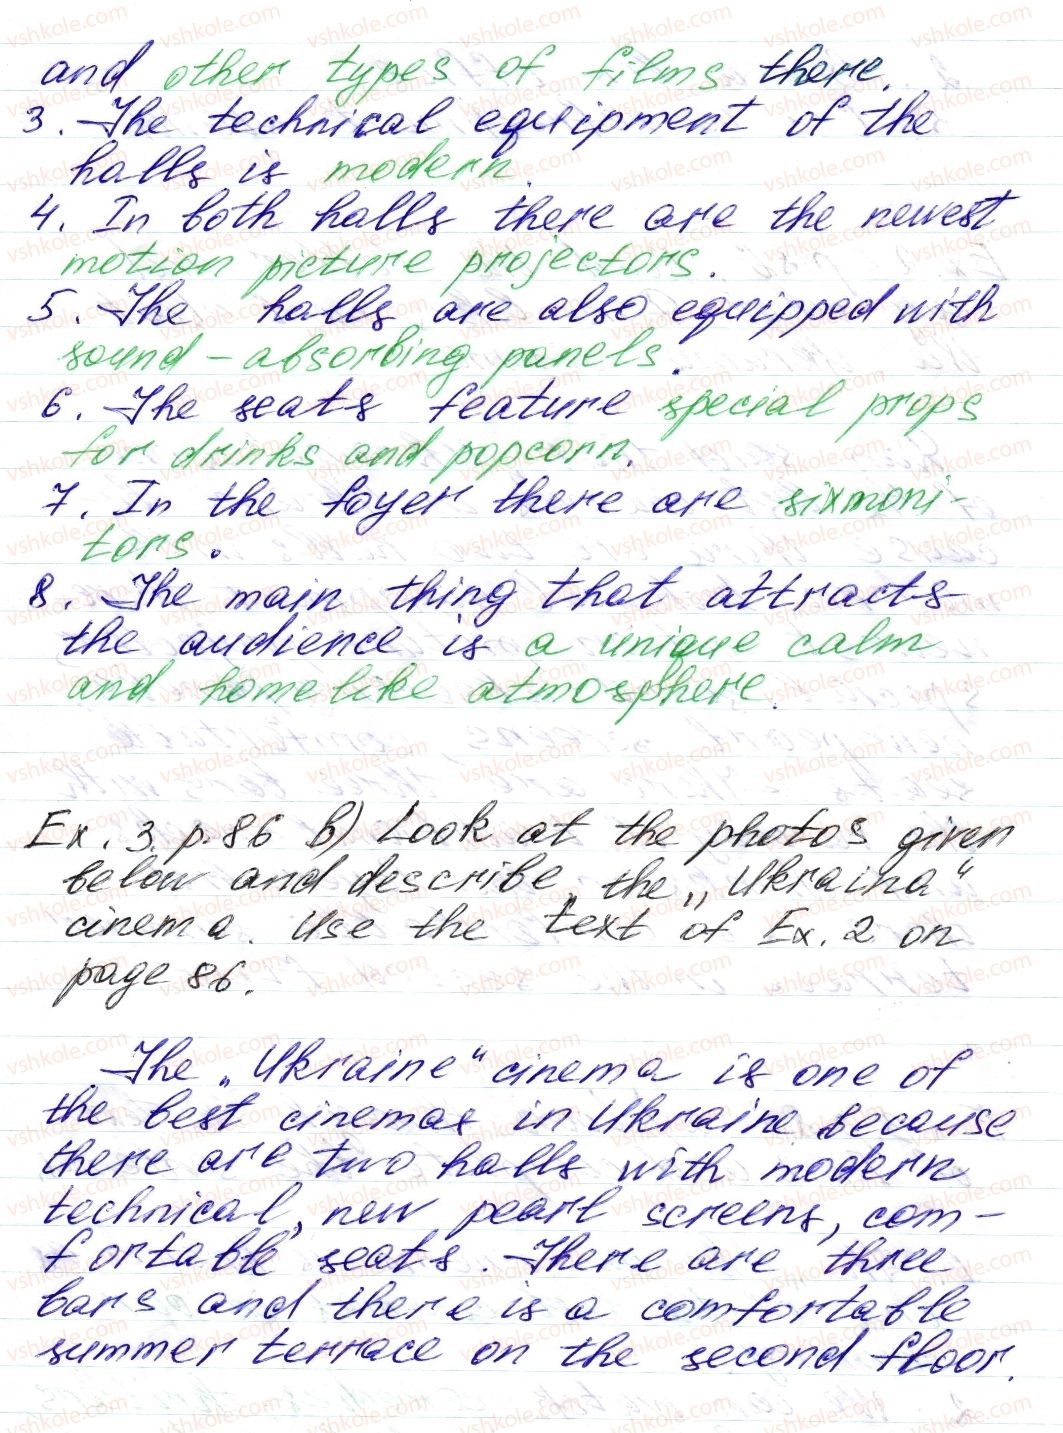 and other types of films there.
3. The technical equipment of the
halls is modern.
4. In both halls there are the newest
motion picture projectors.
5. The halls are also equipped with
sound-absorbing panels.
6. The seats feature special props
for drinks and popcorn.
7. In the foyer there are sixmoni-
tors.
8. The main thing that attracts
the audience is a unique calm
and homelike atmosphere.
Ex. 3. p. 86 b) Look at the photos given
below and describe the „Ukraina“
cinema. Use the text of Ex. 2 on
page 86.
The „Ukraine“ cinema is one of
the best cinemas in Ukraine because
there are two halls with modern
technical, new pearl screens, com-
fortable seats. There are three
bars and there is a comfortable
summer terrace on the second floor.